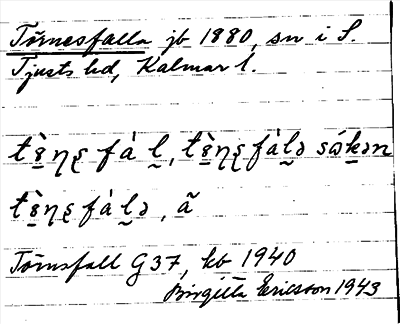 Törnesfalla jb 1880, sn i S.
Tjusts hd, Kalmar l.
tö̀ŋʂfàl, tö̀ŋʂfàlə sɷ́kən
tö̀ŋʂfàlə, ã
Törnsfall G37, kb 1940
Birgitta Ericsson 1943